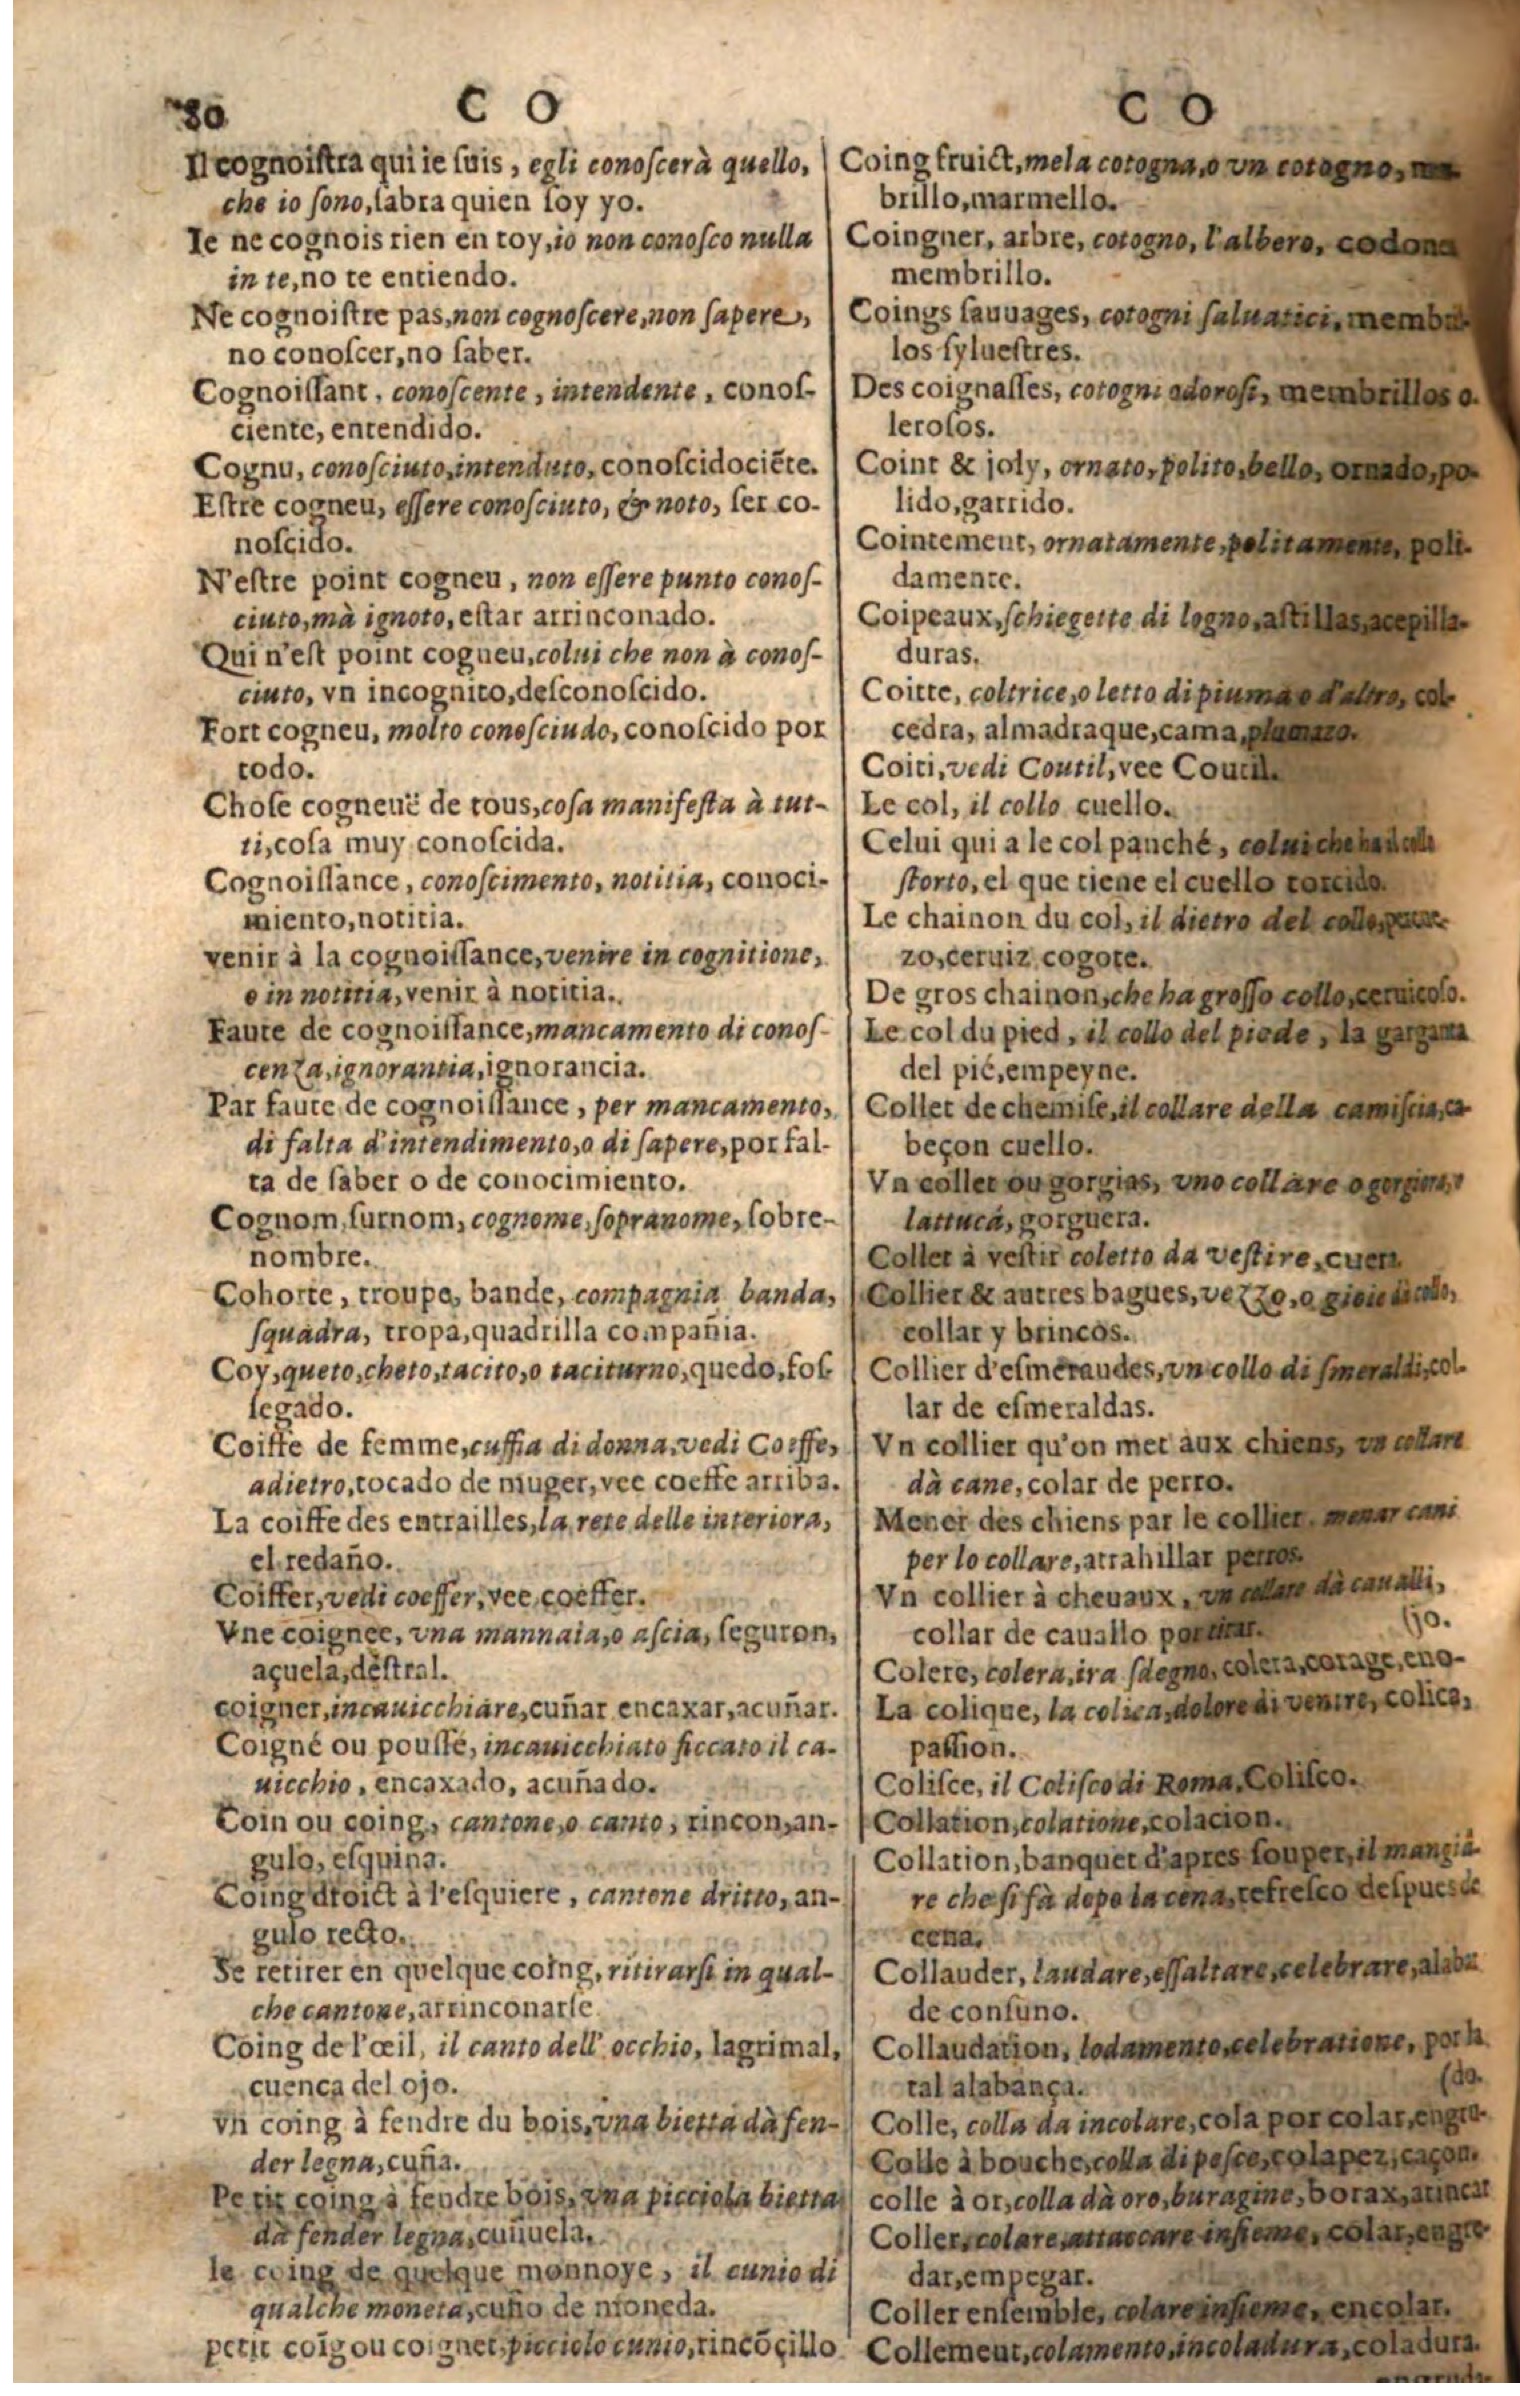 80 C O
Il cognoiſtra qui ie ſuis, egli conoſcerà quello,
che io ſono, ſabra quien ſoy yo.
Ie ne cognois rien en toy, io non conoſco nulla
in te, no te entiendo.
Ne cognoiſtre pas, non cognoſcere, non ſapere,
no conoſcer, no ſaber.
Cognoiſſant, conoſcente, intendente, conoſ-
ciente, entendido.
Cognu, conoſciuto, intenduto, conoſcidociẽte.
Eſtre cogneu, eſſere conoſciuto, & noto, ſer co-
noſcido.
N'eſtre point cogneu, non eſſere punto conoſ-
ciuto, mà ignoto, eſtar arrinconado.
Qui n'eſt point cogueu, colui che non à conoſ-
ciuto, vn incognito, deſconoſcido.
Fort cogneu, molto conoſciudo, conoſcido por
todo.
Choſe cogneuë de tous, coſa manifeſta à tut-
ti, coſa muy conoſcida.
Cognoiſſance, conoſcimento, notitia, conoci-
miento, notitia.
venir à la cognoiſſance, venire in cognitione,
o in notitia, venir à notitia.
Faute de cognoiſſance, mancamento di conoſ-
cenza, ignorantia, ignorancia.
Par faute de cognoiſſance, per mancamento,
di falta d'intendimento, o di ſapere, por fal-
ta de ſaber o de conocimiento.
Cognom, ſurnom, cognome, ſopranome, ſobre-
nombre.
Cohorte, troupe, bande, compagnia banda,
ſquadra, tropa, quadrilla compañia.
Coy, queto, cheto, tacito, o taciturno, quedo, ſoſ-
ſegado.
Coiffe de femme, cuffia di donna, vedi Coeffe,
adietro, tocado de muger, vee coeffe arriba.
La coiffe des entrailles, la rete delle interiora,
el redaño.
Coiffer, vedi coeffer, vee coeffer.
Vne coignee, vna mannaia, o aſcia, ſeguron,
açuela, deſtral.
coigner, incauicchiare, cuñar encaxar, acuñar.
Coigné ou pouſſé, incauicchiato ficcato il ca-
uicchio, encaxado, acuñado.
Coin ou coing, cantone, o canto, rincon, an-
gulo, eſquina.
Coing droict à l'eſquiere, cantone dritto, an-
gulo recto.
Se retirer en quelque coing, ritirarſi in qual-
che cantone, arrinconarſe
Coing de l'œil, il canto dell' occhio, lagrimal,
cuenca del ojo.
vn coing à fendre du bois, vna bietta dà fen-
der legna, cuña.
Petit coing à fendre bois, vna picciola bietta
dà fender legna, cuñuela.
le coing de quelque monnoye, il cunio di
qualche moneta, cuño de moneda.
petit coĩg ou coignet, picciolo cunio, rincõçillo
C O
Coing fruict, mela cotogna, o vn cotogno,
brillo, marmello.
Coingner, arbre, cotogno, l'albero, codona
membrillo.
Coings ſauuages, cotogni ſaluatici, membril-
los ſylueſtres.
Des coignaſſes, cotogni odoroſi, membrillos o-
leroſos.
Coint & joly, ornato, polito, bello, ornado, po-
lido, garrido.
Cointement, ornatamente, politamente, poli-
damente.
Coipeaux, ſchiegette di legno, aſtillas, acepilla-
duras.
Coitte, coltrice, o letto di piuma o d'altro, col-
cedra, almadraque, cama, plumazo.
Coiti, vedi Coutil, vee Coutil.
Le col, il collo cuello.
Celui qui a le col panché, colui che ha il collo
ſtorto, el que tiene el cuello torcido.
Le chainon du col, il dietro del collo,
zo, ceruiz cogote.
De gros chainon, che ha groſſo collo, ceruicoſo.
Le col du pied, il collo del piede, la garganta
del pié, empeyne.
Collet de chemiſe, il collare della camiſcia, ca-
beçon cuello.
Vn collet ou gorgias, vno collare o gorgiera, o
lattuca, gorguera.
Collet à veſtir coletto da veſtire, cuera.
Collier & autres bagues, vezzo, o gioie di collo,
collar y brincos.
Collier d'eſmeraudes, vn collo di ſmeraldi, col-
lar de eſmeraldas.
Vn collier qu'on met aux chiens, vn collare
dà cane, colar de perro.
Mener des chiens par le collier, menar cani
per lo collare, atrahillar perros.
Vn collier à cheuaux, vn collare dà caualli,
collar de cauallo por tirar. (jo.
Colere, colera, ira ſdegno, colera, corage, eno-
La colique, la colica, dolore di ventre, colica,
paſſion.
Coliſce, il Coliſco di Roma, Coliſco.
Collation, colatione, colacion.
Collation, banquet d'apres ſouper, il mangia-
re che ſi fà dopo la cena, refreſco deſpues de
cena.
Collauder, laudare, eſſaltare, celebrare, alabar
de conſuno.
Collaudation, lodamento, celebratione, por la
tal alabança. (do.
Colle, colla da incolare, cola por colar, engru-
Colle à bouche, colla di peſce, colapez, caçon.
colle à or, colla dà oro, buragine, borax, atincar
Coller, colare, attaccare inſieme, colar, engru-
dar, empegar.
Coller enſemble, colare inſieme, encolar.
Collement, colamento, incoladura, coladura.